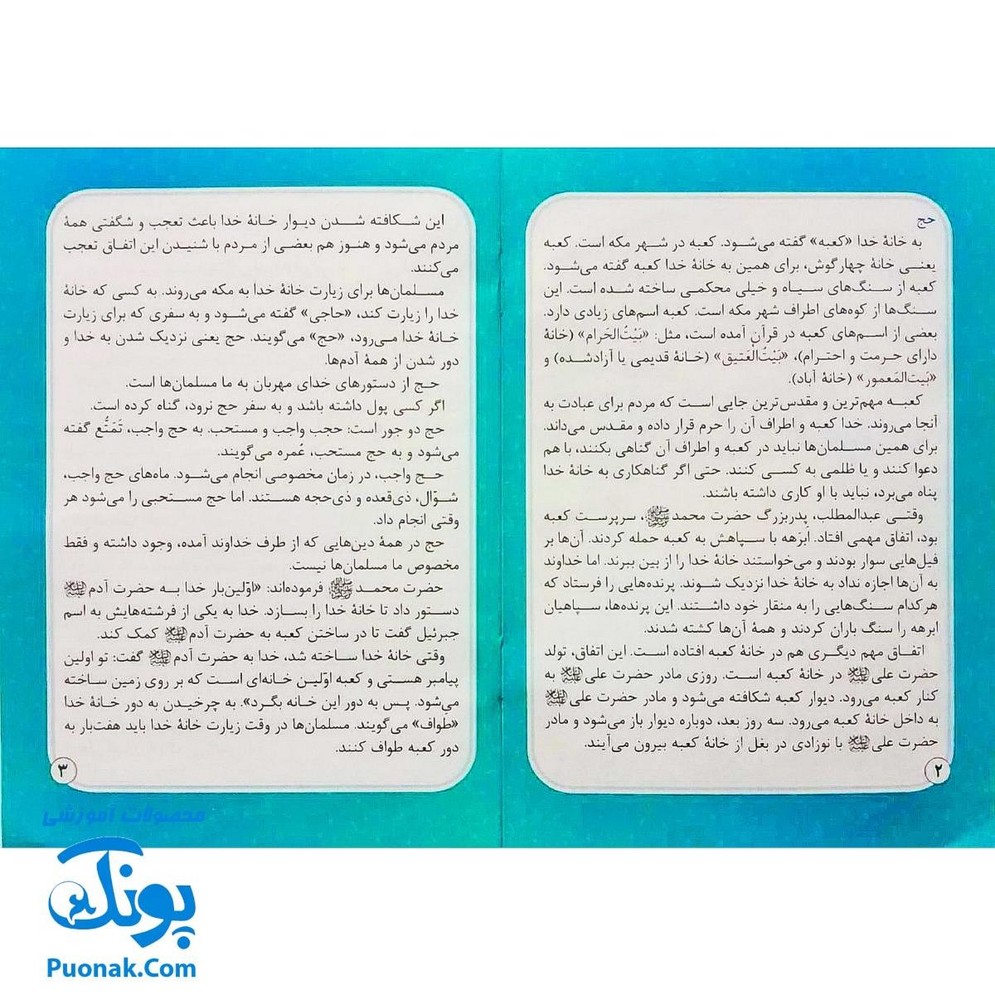 حج
به خانهٔ خدا «کعبه» گفته می‌شود. کعبه در شهر مکه است. کعبه
یعنی خانهٔ چهارگوش، برای همین به خانهٔ خدا کعبه گفته می‌شود.
کعبه از سنگ‌های سیاه و خیلی محکمی ساخته شده است. این
سنگ‌ها از کوه‌های اطراف شهر مکه است. کعبه اسم‌های زیادی دارد.
بعضی از اسم‌های کعبه در قرآن آمده است، مثل: «بَیْتُ‌الحَرام» (خانهٔ
دارای حرمت و احترام)، «بَیْتُ‌العَتیق» (خانهٔ قدیمی یا آزادشده) و
«بَیت‌المَعمور» (خانهٔ آباد).
کعبه مهم‌ترین و مقدس‌ترین جایی است که مردم برای عبادت به
آنجا می‌روند. خدا کعبه و اطراف آن را حرم قرار داده و مقدس می‌داند.
برای همین مسلمان‌ها نباید در کعبه و اطراف آن گناهی بکنند، با هم
دعوا کنند و یا ظلمی به کسی کنند. حتی اگر گناهکاری به خانهٔ خدا
پناه می‌برد، نباید با او کاری داشته باشند.
وقتی عبدالمطلب، پدربزرگ حضرت محمدﷺ، سرپرست کعبه
بود، اتفاق مهمی افتاد. اَبرَهه با سپاهش به کعبه حمله کردند. آن‌ها بر
فیل‌هایی سوار بودند و می‌خواستند خانهٔ خدا را از بین ببرند. اما خداوند
به آن‌ها اجازه نداد به خانهٔ خدا نزدیک شوند. پرنده‌هایی را فرستاد که
هرکدام سنگ‌هایی را به منقار خود داشتند. این پرنده‌ها، سپاهیان
ابرهه را سنگ باران کردند و همهٔ آن‌ها کشته شدند.
اتفاق مهم دیگری هم در خانهٔ کعبه افتاده است. این اتفاق، تولد
حضرت علی؈ در خانهٔ کعبه است. روزی مادر حضرت علی؈ به
کنار کعبه می‌رود. دیوار کعبه شکافته می‌شود و مادر حضرت علی؈
به داخل خانهٔ کعبه می‌رود. سه روز بعد، دوباره دیوار باز می‌شود و مادر
حضرت علی؈ با نوزادی در بغل از خانهٔ کعبه بیرون می‌آیند.
۲
این شکافته شدن دیوار خانهٔ خدا باعث تعجب و شگفتی همهٔ
مردم می‌شود و هنوز هم بعضی از مردم با شنیدن این اتفاق تعجب
می‌کنند.
مسلمان‌ها برای زیارت خانهٔ خدا به مکه می‌روند. به کسی که خانهٔ
خدا را زیارت کند، «حاجی» گفته می‌شود و به سفری که برای زیارت
خانهٔ خدا می‌رود، «حج» می‌گویند. حج یعنی نزدیک شدن به خدا و
دور شدن از همهٔ آدم‌ها.
حج از دستورهای خدای مهربان به ما مسلمان‌ها است.
اگر کسی پول داشته باشد و به سفر حج نرود، گناه کرده است.
حج دو جور است: حجب واجب و مستحب. به حج واجب، تَمَتُّع گفته
می‌شود و به حج مستحب، عُمره می‌گویند.
حج واجب، در زمان مخصوصی انجام می‌شود. ماه‌های حج واجب،
شوّال، ذی‌قعده و ذی‌حجه هستند. اما حج مستحبی را می‌شود هر
وقتی انجام داد.
حج در همهٔ دین‌هایی که از طرف خداوند آمده، وجود داشته و فقط
مخصوص ما مسلمان‌ها نیست.
حضرت محمدﷺ فرموده‌اند: «اوّلین‌بار خدا به حضرت آدم؈
دستور داد تا خانهٔ خدا را بسازد. خدا به یکی از فرشته‌هایش به اسم
جبرئیل گفت تا در ساختن کعبه به حضرت آدم؈ کمک کند.
وقتی خانهٔ خدا ساخته شد، خدا به حضرت آدم؈ گفت: تو اولین
پیامبر هستی و کعبه اوّلین خانه‌ای است که بر روی زمین ساخته
می‌شود. پس به دور این خانه بگرد». به چرخیدن به دور خانهٔ خدا
«طواف» می‌گویند. مسلمان‌ها در وقت زیارت خانهٔ خدا باید هفت‌بار به
دور کعبه طواف کنند.
۳
محصولات آموزشی
پونک
Puonak.Com